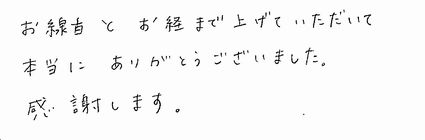 お線香と お経まで上げていただいて
本当に ありがとうございました。
感謝します。